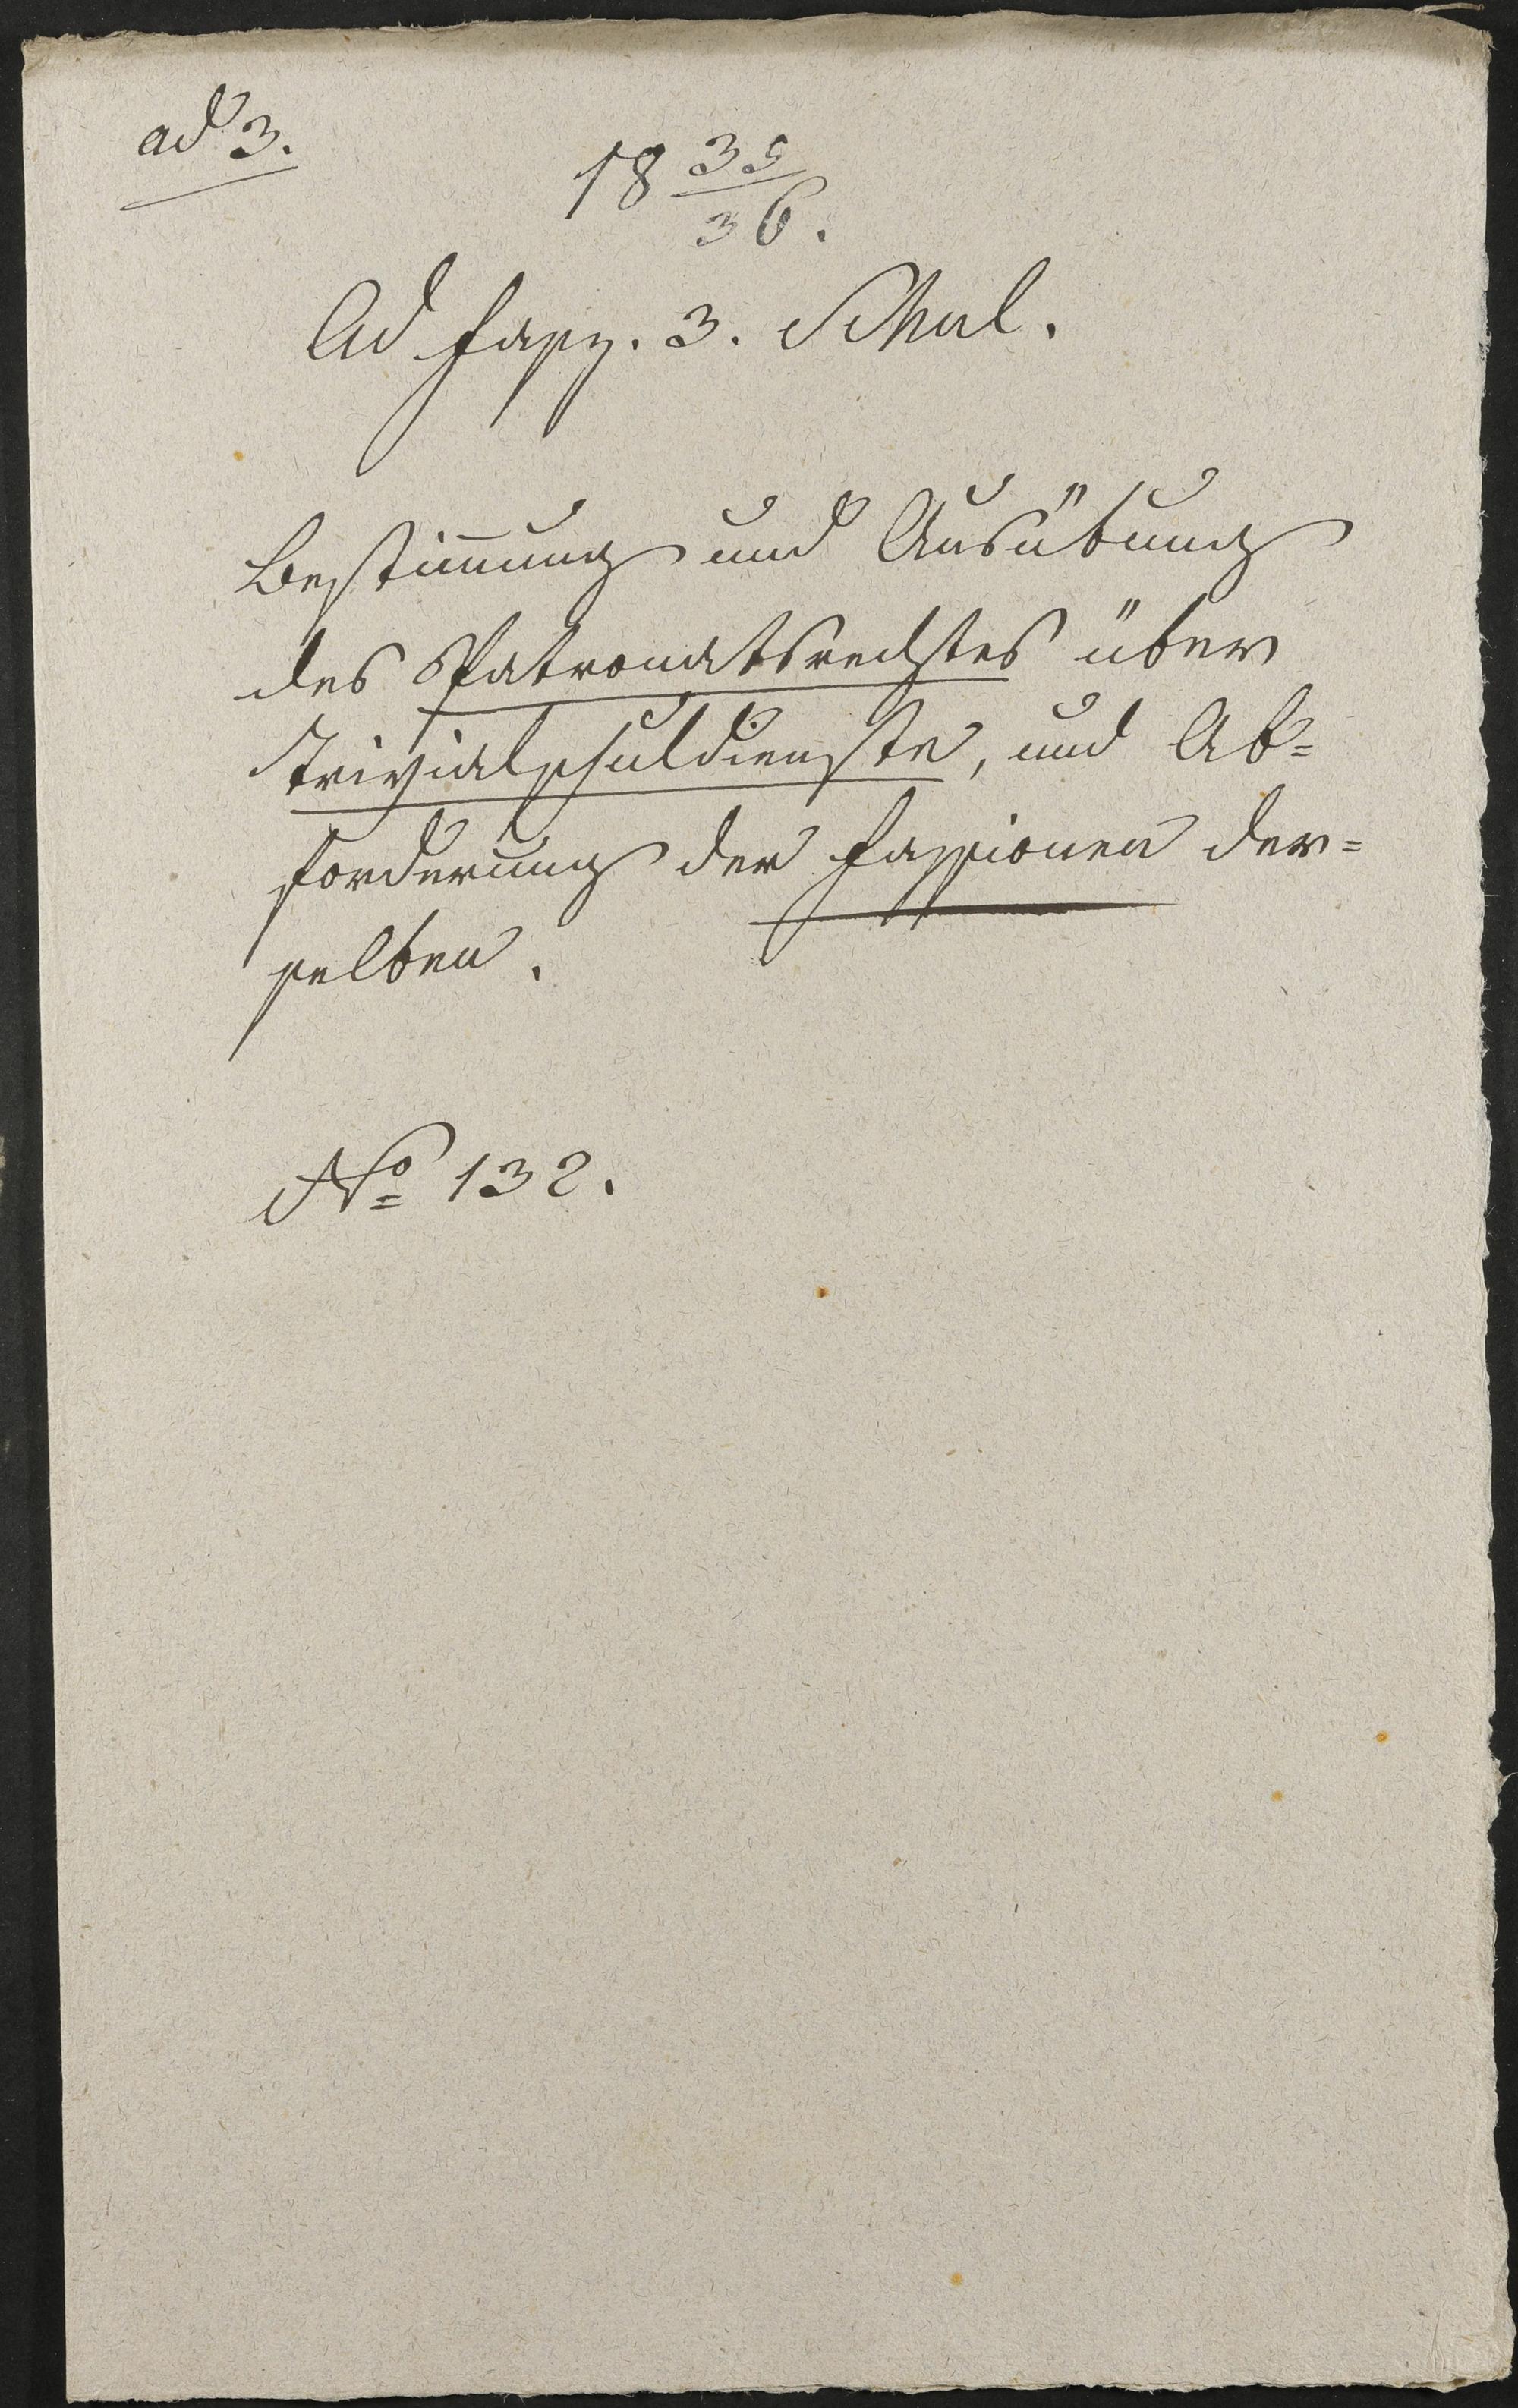 ad 3.
18 35/36.
Ad Fasz. 3. Schul.
Bestim̄ung und Ausübung
des Patronatsrechtes über
Trivialschuldienste, und Ab=
forderung der Fassionen der=
selben.
No 132.